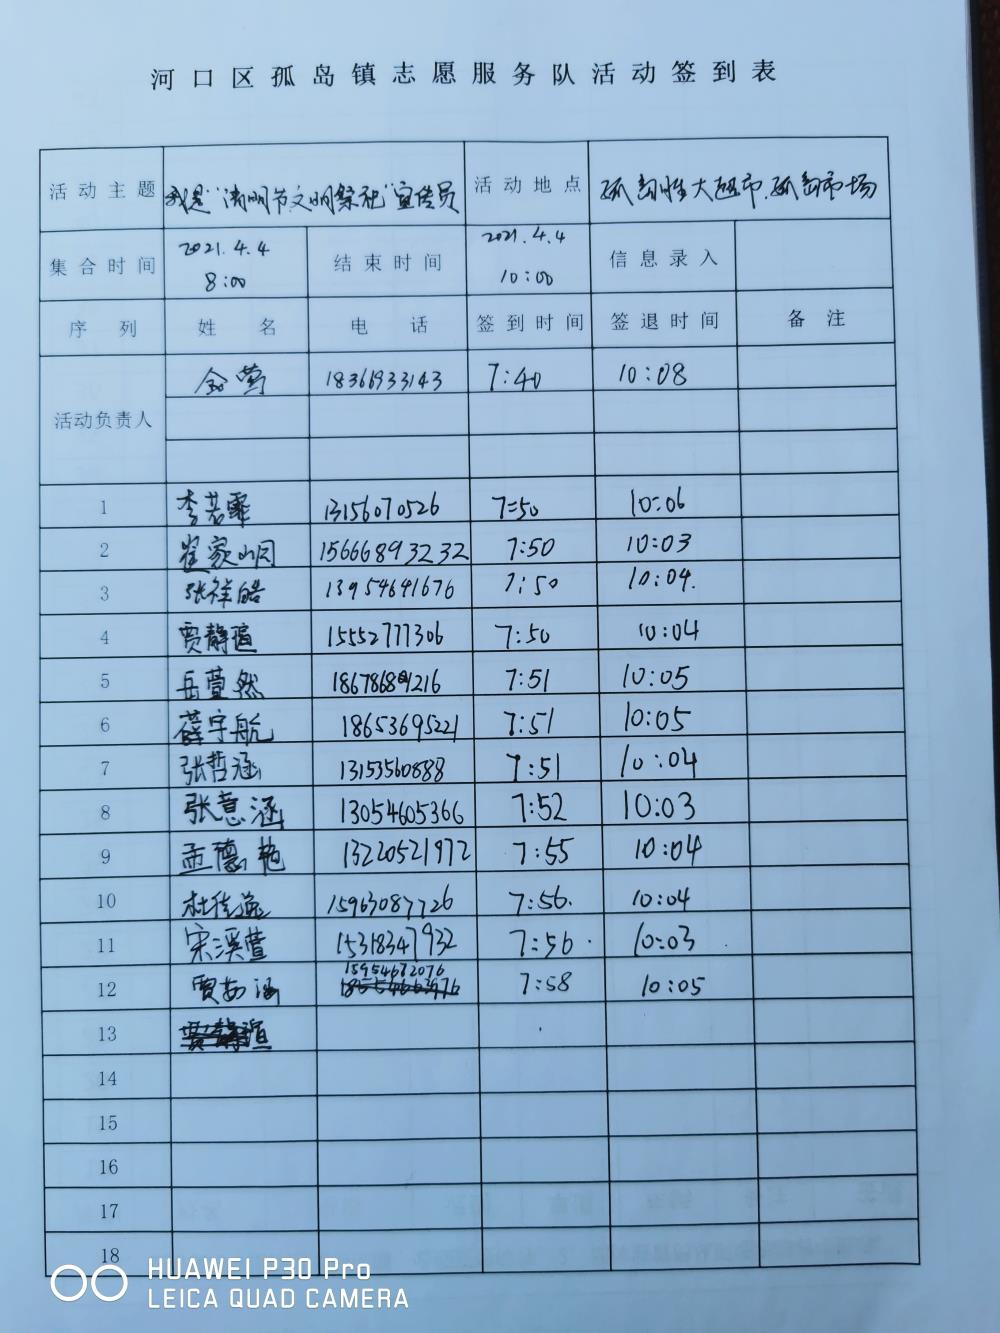 河口区孤岛镇志愿服务队活动签到表
活动主题 我是"清明节文明祭祀"宣传员 活动地点 孤岛胜大超市.孤岛市场
集合时间 2021.4.4 8:00 结束时间 2021.4.4 10:00 信息录入
序列 姓名 电话 签到时间 签退时间 备注
活动负责人 莺 18366933143 7:40 10:08
1 李若霏 13156070526 7:50 10:06
2 崔家明 15666893232 7:50 10:03
3 张祥皓 13954641676 7:50 10:04.
4 贾静瑄 15552777306 7:50 10:04
5 岳萱然 7:51 10:05
6 薛宇航 18653695221 7:51 10:05
7 张哲涵 13153560888 7:51 10:04
8 张意涵 13054605366 7:52 10:03
9 孟德艳 13220521972 7:55 10:04
10 杜佳逸 15963087726 7:56. 10:04
11 宋溪萱 15318347932 7:56 10:03
12 贾涵 15954672076 7:58 10:05
13
14
15
16
17
18
HUAWEI P30 Pro
LEICA QUAD CAMERA